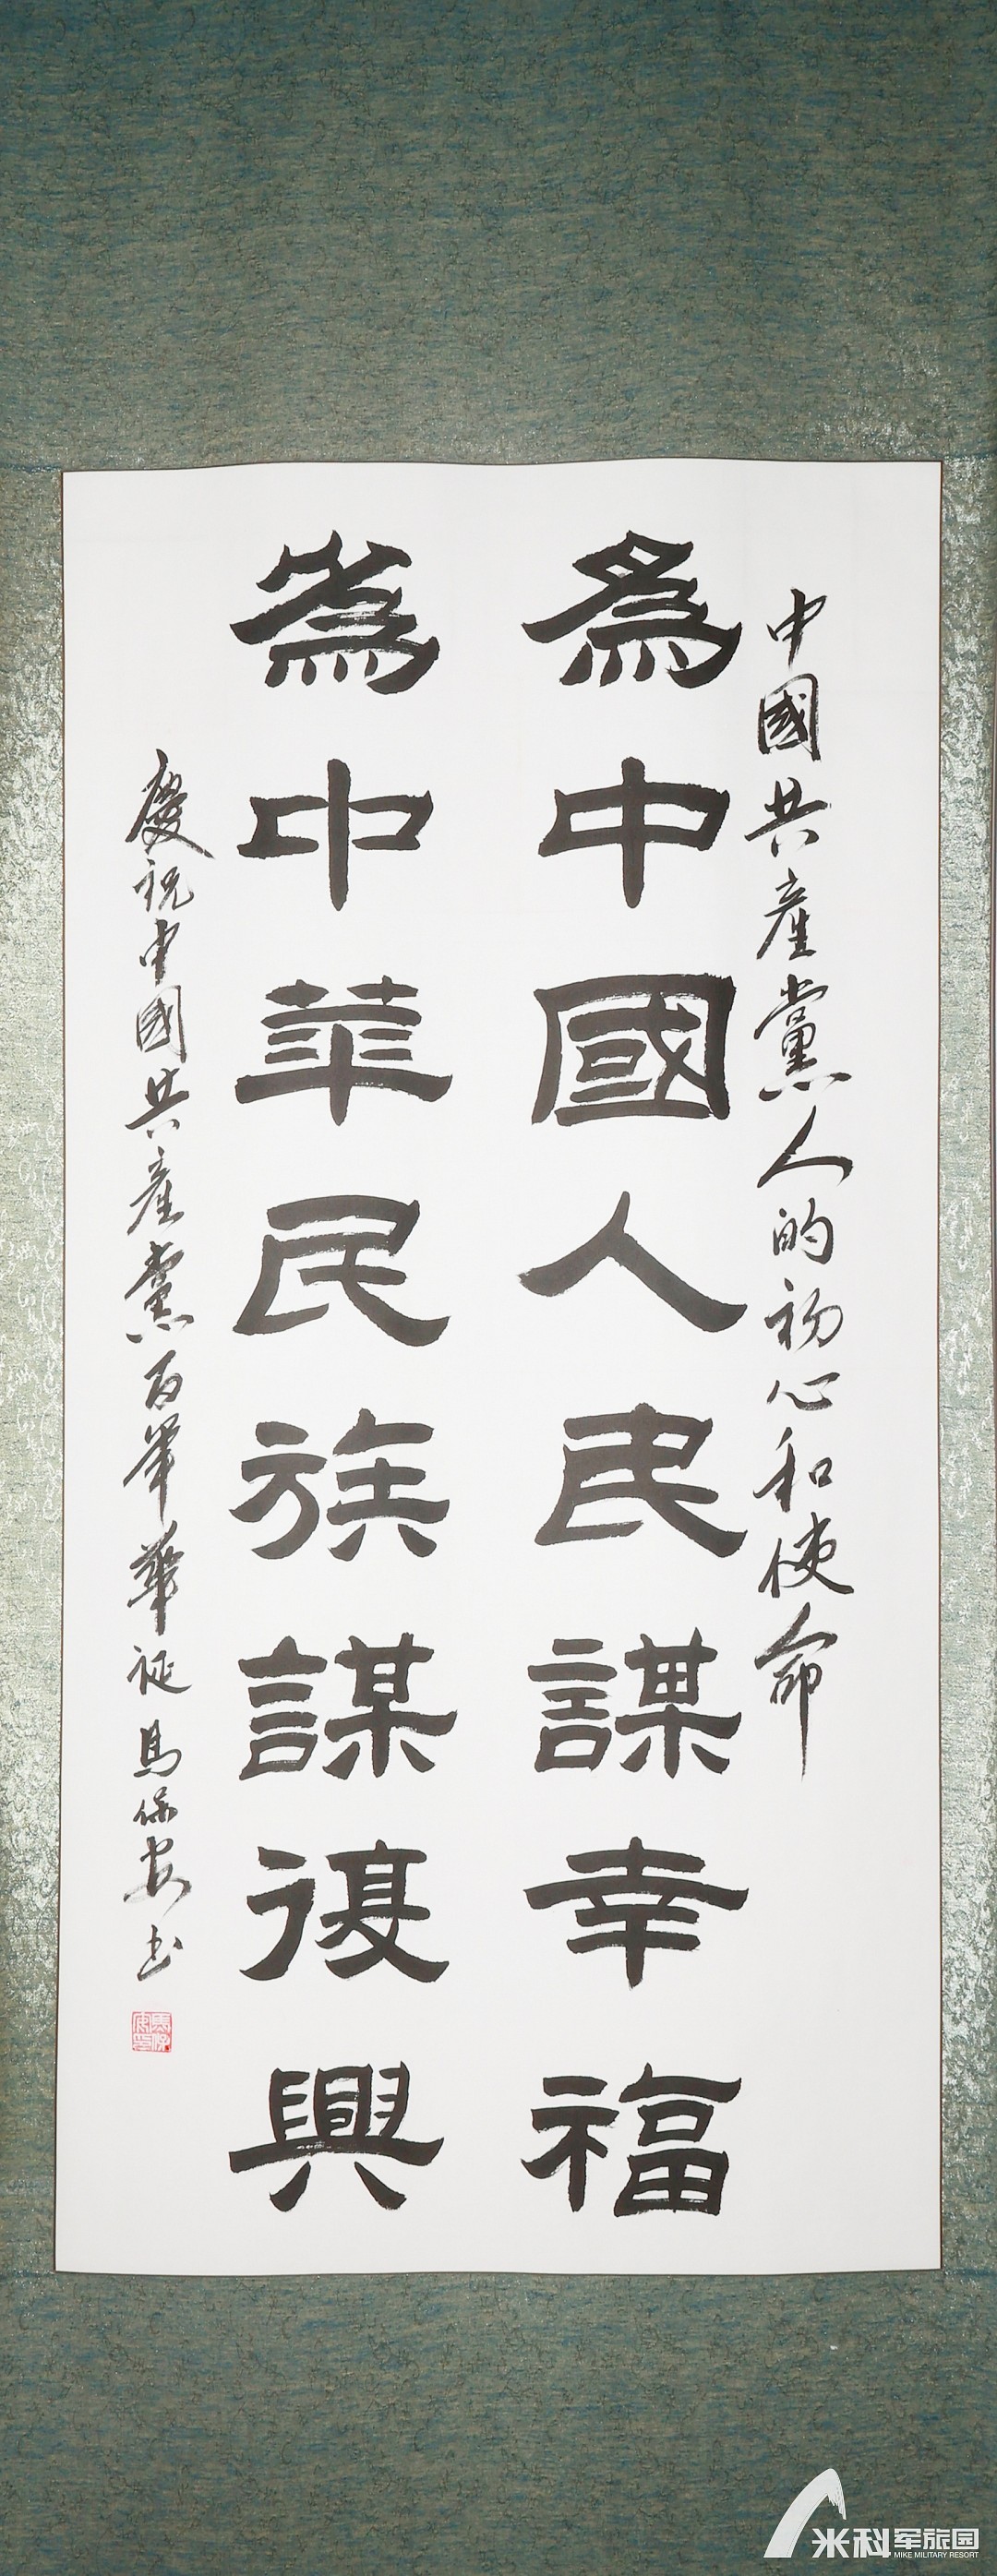 中國共產黨人的初心和使命
為中國人民謀幸福
為中華民族謀復興
慶祝中國共產黨百年華誕 馬保安书
馬保安印
米科军旅园
MIKE MILITARY RESORT